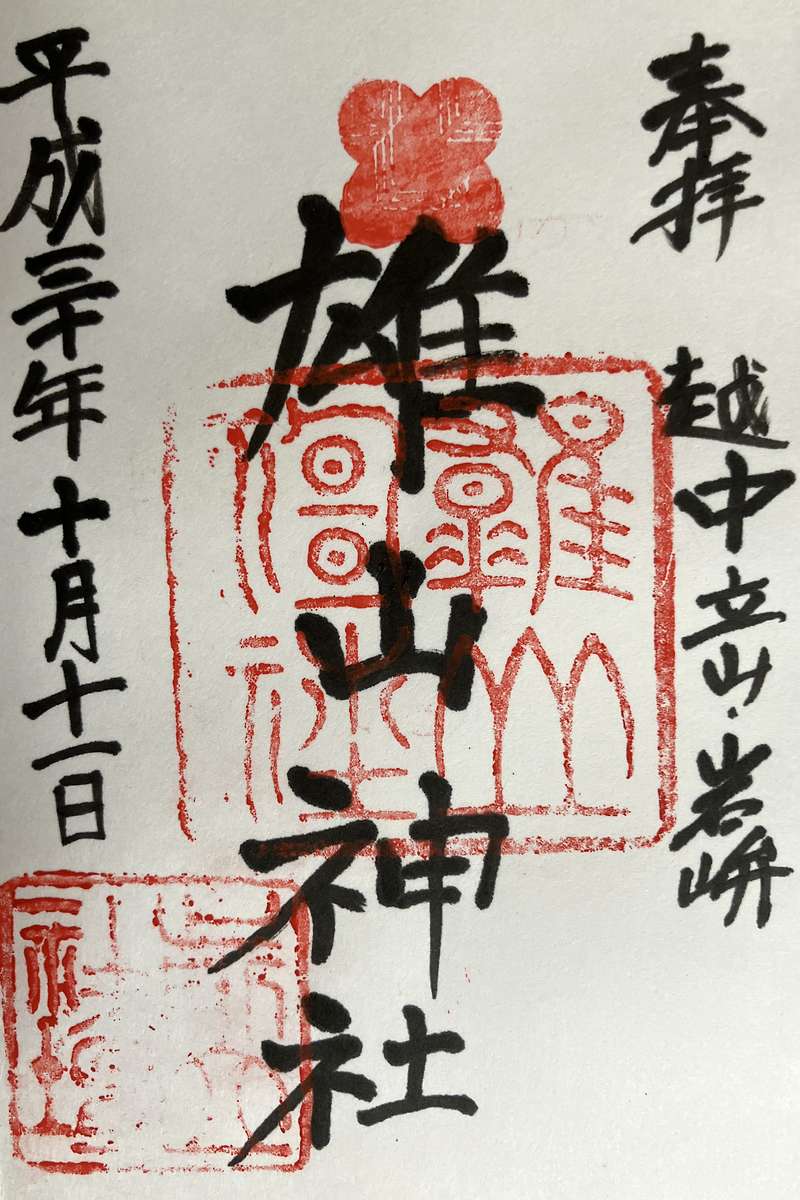 奉拝
越中立山・岩峅
雄山神社
雄山神社
平成三十年十月十一日